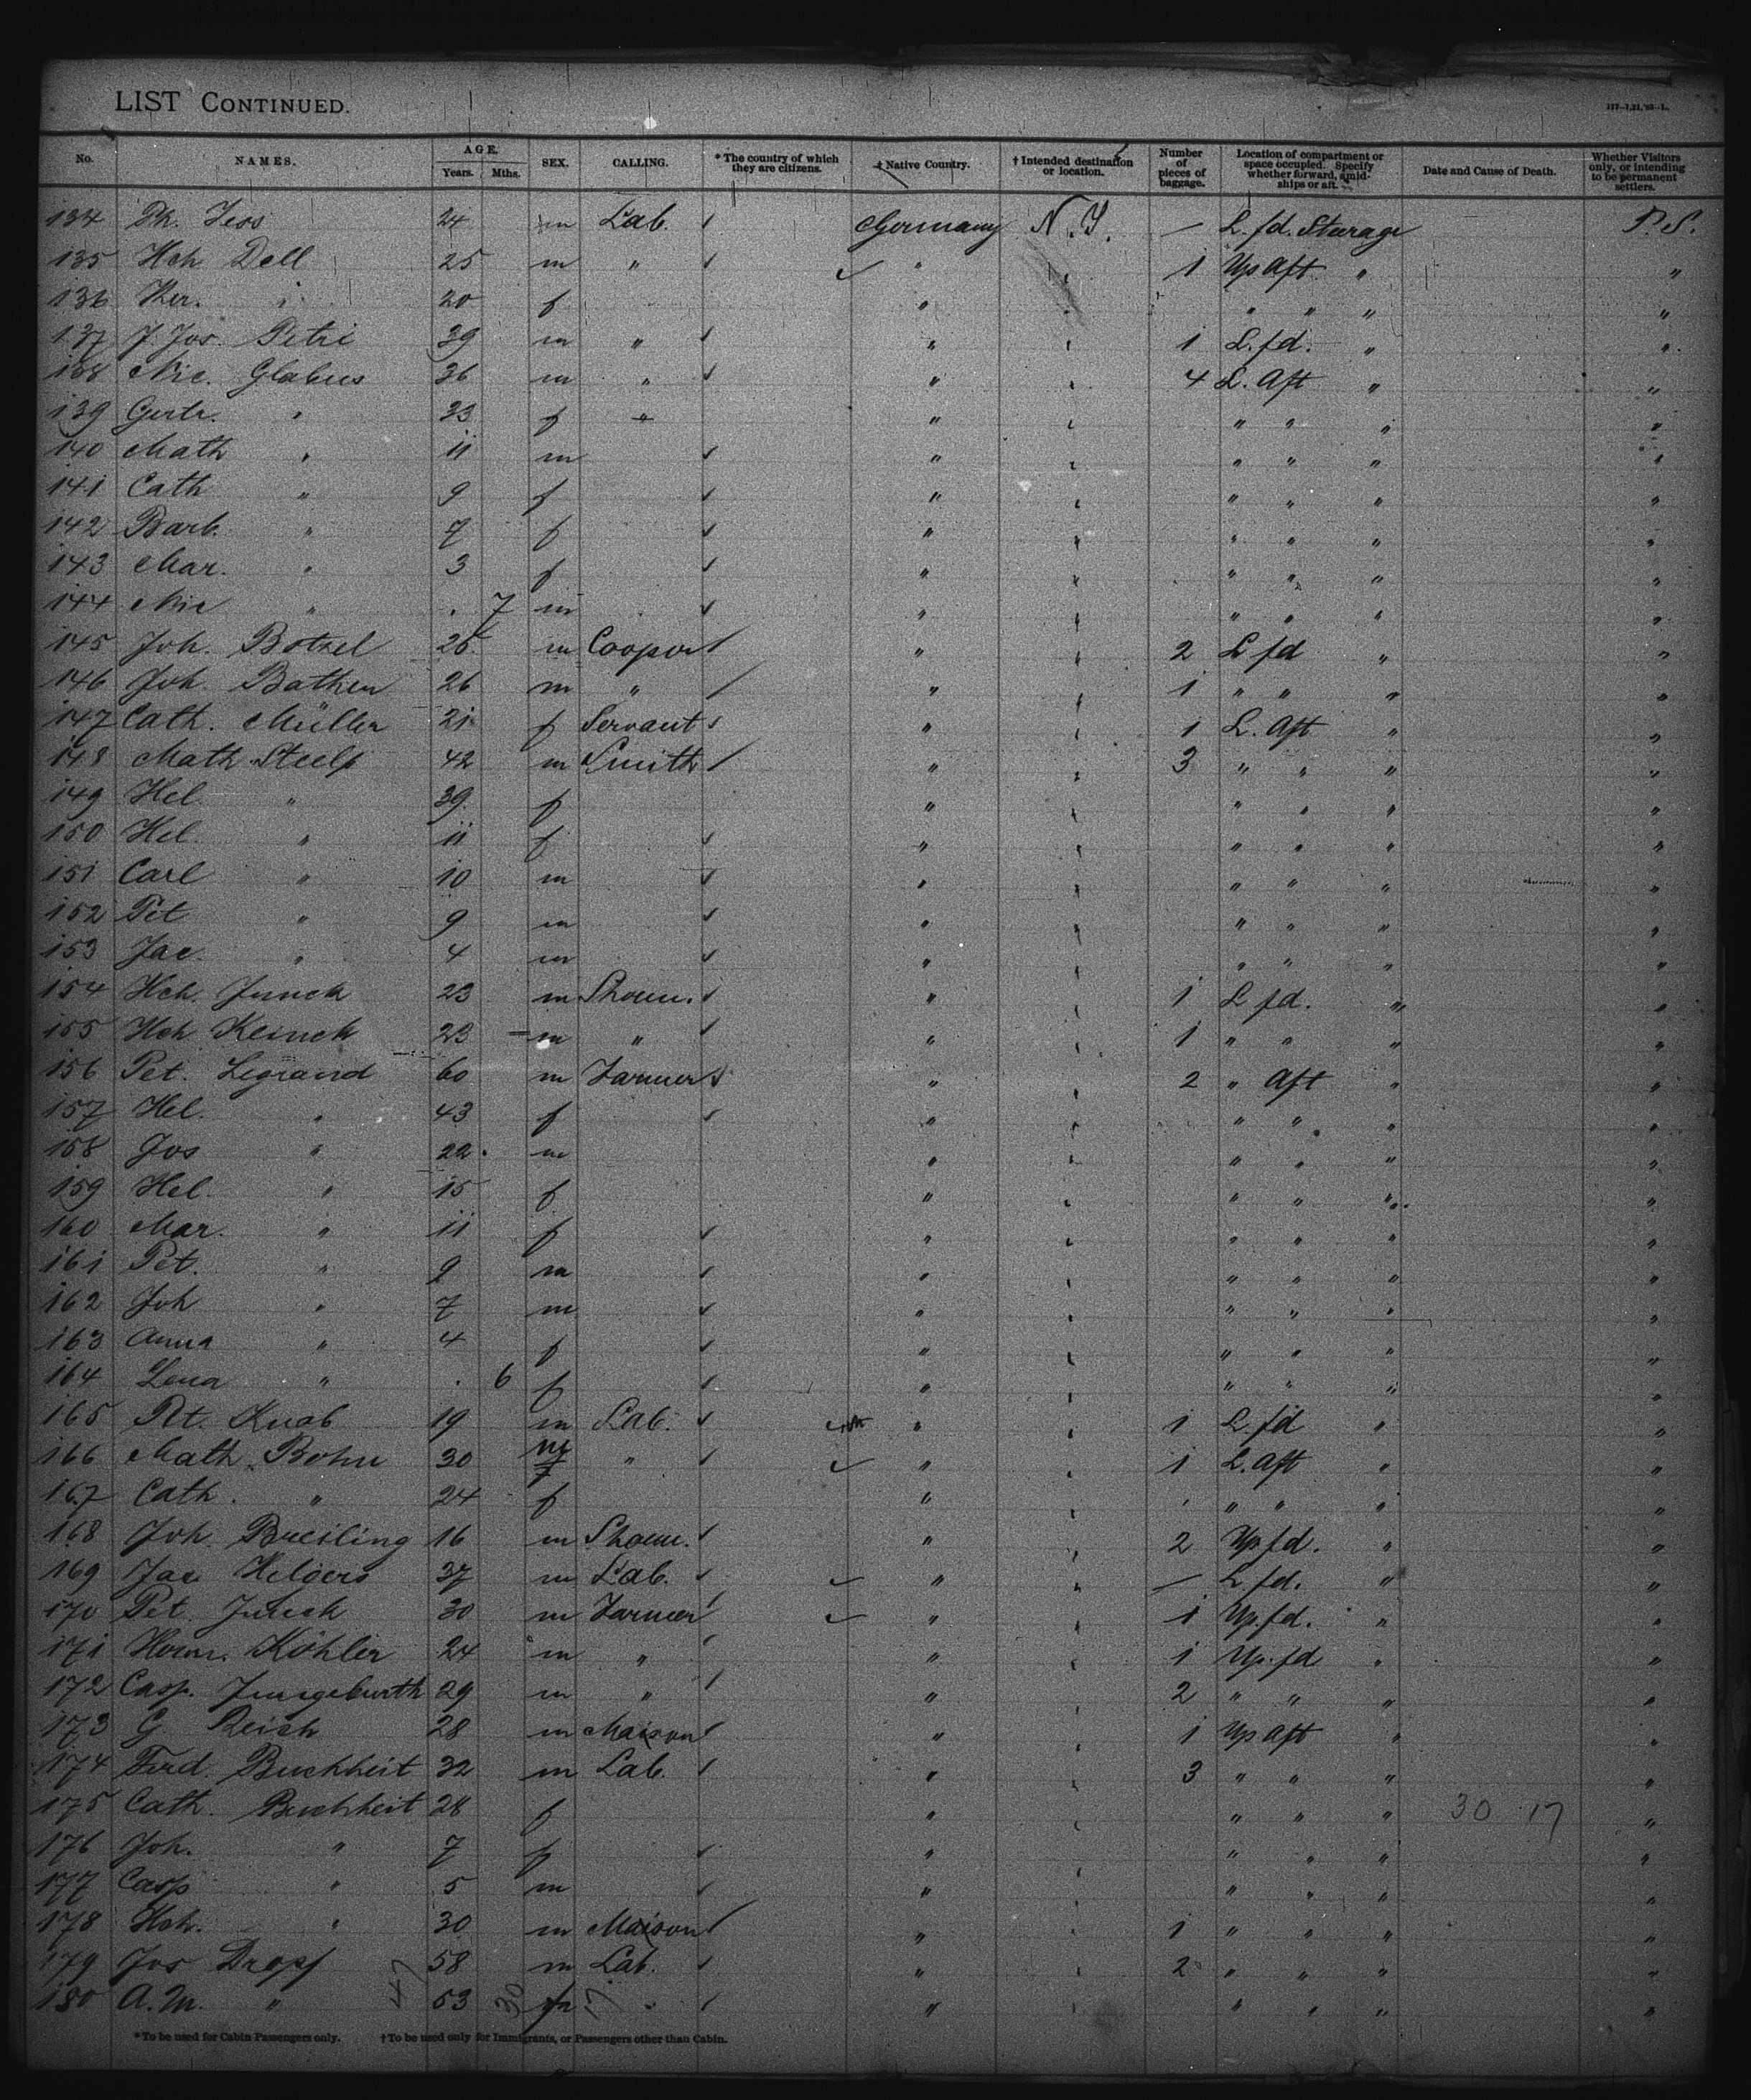 LIST CONTINUED.
117-1,21,'93-L.
No. NAMES. AGE. Years. Mths. SEX. CALLING. * The country of which they are citizens. † Native Country. † Intended destination or location. Number of pieces of baggage. Location of compartment or space occupied. Specify whether forward, amidships or aft. Date and Cause of Death. Whether Visitors only, or intending to be permanent settlers.
134 Ph. 24 m Lab. ✓ Germany N.Y. — L. fd. Steerage P.S.
135 Hch Dell 25 m " ✓ ✓ " " 1 Up Aft " "
136 Ker. " 20 f " " " " " "
137 J. Jos. Petri 39 m " ✓ " " 1 L. fd. " "
138 Nic. Glabus 36 m " ✓ " " 4 L. Aft " "
139 Gertr. " 33 f " " " " " " "
140 Math " 11 m ✓ " " " " " "
141 Cath " 9 f ✓ " " " " " "
142 Barb. " 7 f ✓ " " " " " "
143 Mar. " 3 f ✓ " " " " " "
144 Nic " . 7 m ✓ " " " " " "
145 Joh. Botzel 26 m Cooper ✓ " " 2 L fd " "
146 Joh. Bathen 26 m " ✓ " " 1 " " " "
147 Cath. Müller 21 f Servant ✓ " " 1 L. Aft " "
148 Math Steelp 42 m Smith ✓ " " 3 " " " "
149 Hel. " 39. f " " " " " "
150 Hel. " 11 f ✓ " " " " " "
151 Carl " 10 m ✓ " " " " " "
152 Pet " 9 m ✓ " " " " " "
153 Jac. " 4 m ✓ " " " " " "
154 Hch. Junck 23 m Shoem. ✓ " " 1 L fd. " "
155 Hch. 23 m " ✓ " " 1 " " " "
156 Pet. Legrand 60 m Farmer ✓ " " 2 " Aft " "
157 Hel. " 43 f ✓ " " " " " "
158 Jos " 22 m " " " " " "
159 Hel. " 15 f " " " " " "
160 Mar. " 11 f ✓ " " " " " "
161 Pet. " 9 m ✓ " " " " " "
162 Joh " 7 m ✓ " " " " " "
163 Anna " 4 f ✓ " " " " " "
164 Lena " . 6 f ✓ " " " " " "
165 Pet. Knob 19 m Lab. ✓ " " 1 L fd " "
166 Math. Bohn 30 m " ✓ ✓ " " 1 L. aft " "
167 Cath. " 24 f " " " " " "
168 Joh. Breiling 16 m Shoem. ✓ " " 2 Up fd. " "
169 Jac Hilgers 37 m Lab. ✓ ✓ " " — L fd. " "
170 Pet. Junck 30 m Farmer ✓ ✓ " " 1 Up. fd. " "
171 Herm. Köhler 24 m " ✓ " " 1 Up. fd " "
172 Casp. Jungeburth 29 m " ✓ " " 2 " " " "
173 G. Reich 28 m Maison ✓ " " 1 Up Aft " "
174 Ferd. Buchheit 32 m Lab. ✓ " " 3 " " " "
175 Cath. Buchheit 28 f " " " " " 30 17 "
176 Joh. " 7 f ✓ " " " " " "
177 Casp " 5 m ✓ " " " " " "
178 Hch. " 30 m Maison ✓ " " 1 " " " "
179 Jos Drapf 58 m Lab. ✓ " " 2 " " " "
180 A.M. " 47 53 30 17 " ✓ " " " " " "
*To be used for Cabin Passengers only. †To be used only for Immigrants, or Passengers other than Cabin.